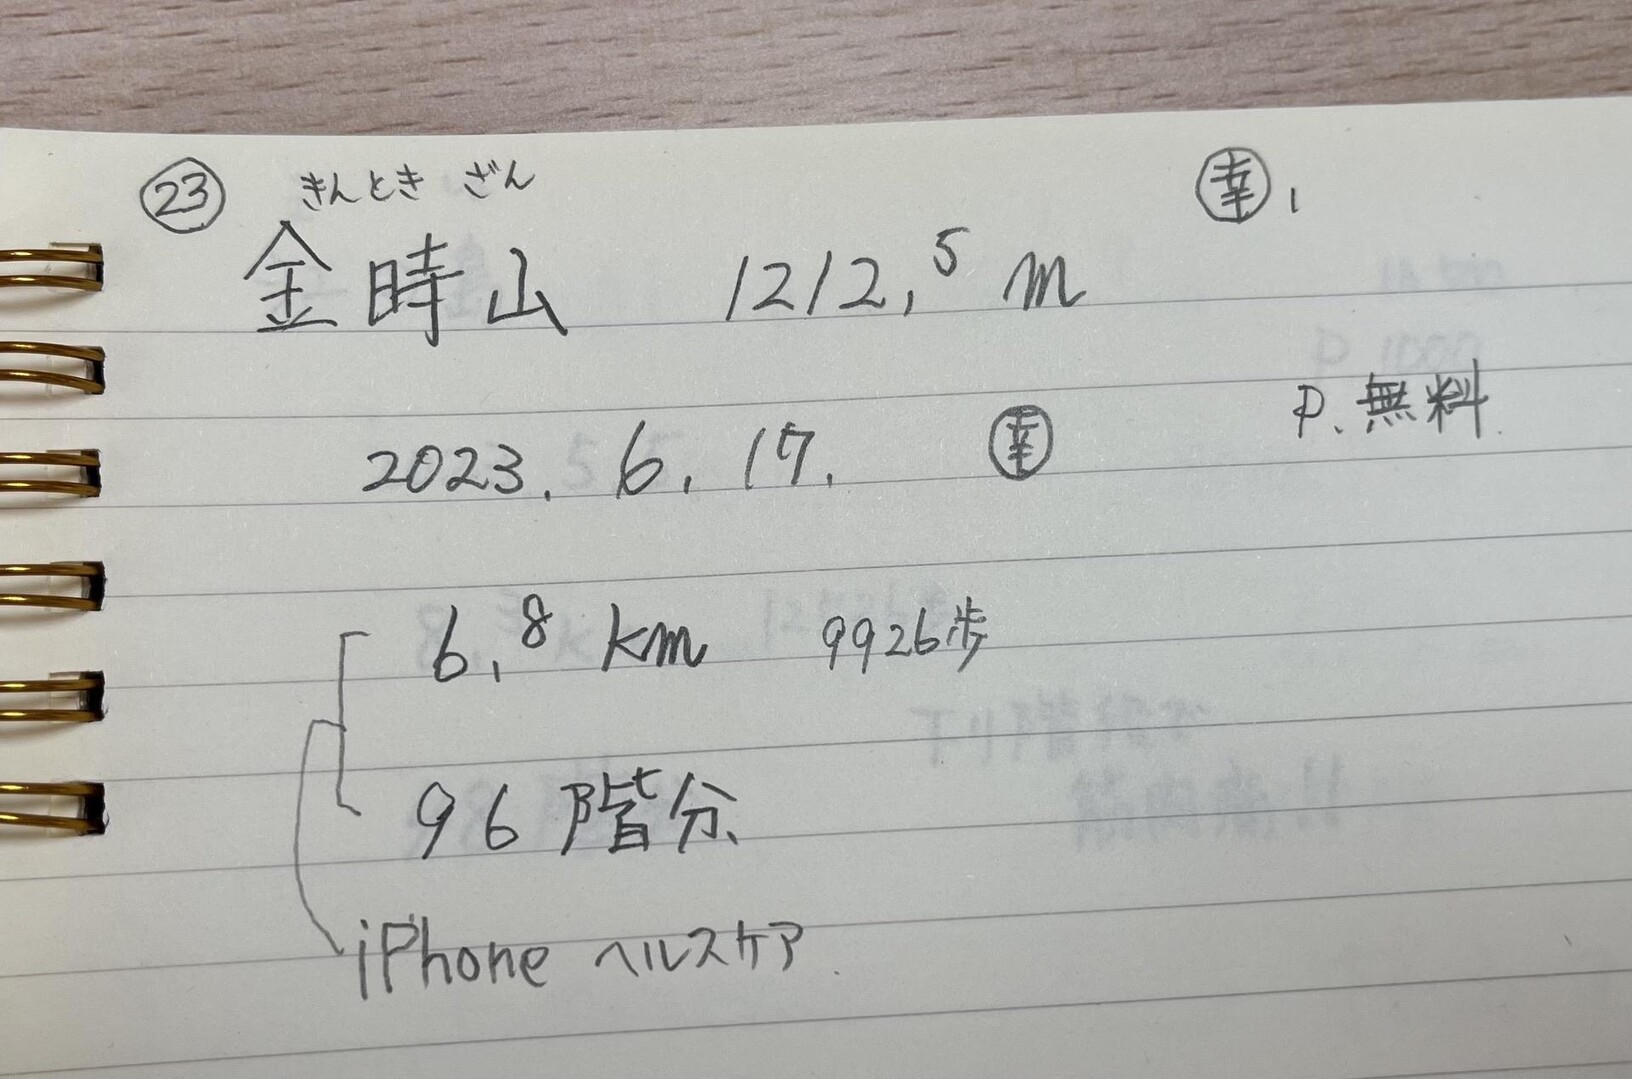 ㉓ きんとき ざん ㊵幸.
金時山 1212,5 m
P. 無料
2023. 6. 17. 幸
6,8 km 9926歩
96 階分
iPhone ヘルスケア